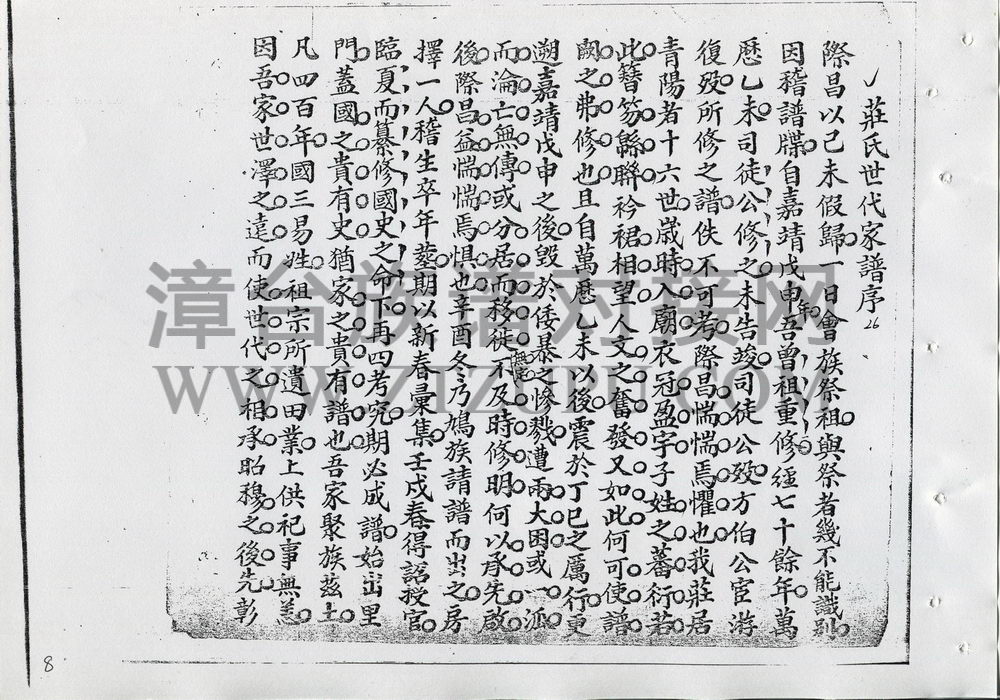 莊氏世代家譜序 26
際昌以己未假歸一日會族祭祖與祭者幾不能識別
因稽譜牒自嘉靖戊申年吾曾祖重修經七十餘年萬
歷乙未司徒公修之未告竣司徒公歿方伯公宦游
復歿所修之譜佚不可考際昌惴惴焉懼也我莊居
青陽者十六世歲時入廟衣冠盈宇子姓之蕃衍若
此簪笏緜聯衿裾相望人文之奮發又如此何可使譜
闕之弗修也且自萬歷乙未以後震於丁巳之厲行更
遡嘉靖戊申之後毀於倭暴之慘戮遭兩大困或一派
而淪亡無傳或分居而移徙無定不及時修明何以承先啟
後際昌益惴惴焉惧也辛酉冬乃鳩族請譜而出之房
擇一人稽生卒年塟期以新春彙集壬戌春得詔授官
臨夏而纂修國史之命下再四考究期必成譜始出里
門蓋國之貴有史猶家之貴有譜也吾家聚族茲土
凡四百年國三易姓祖宗所遺田業上供祀事無恙
因吾家世澤之遠而使世代之相承昭穆之後先彰
漳台族谱对接网
WWW.ZTZUPU.COM
8